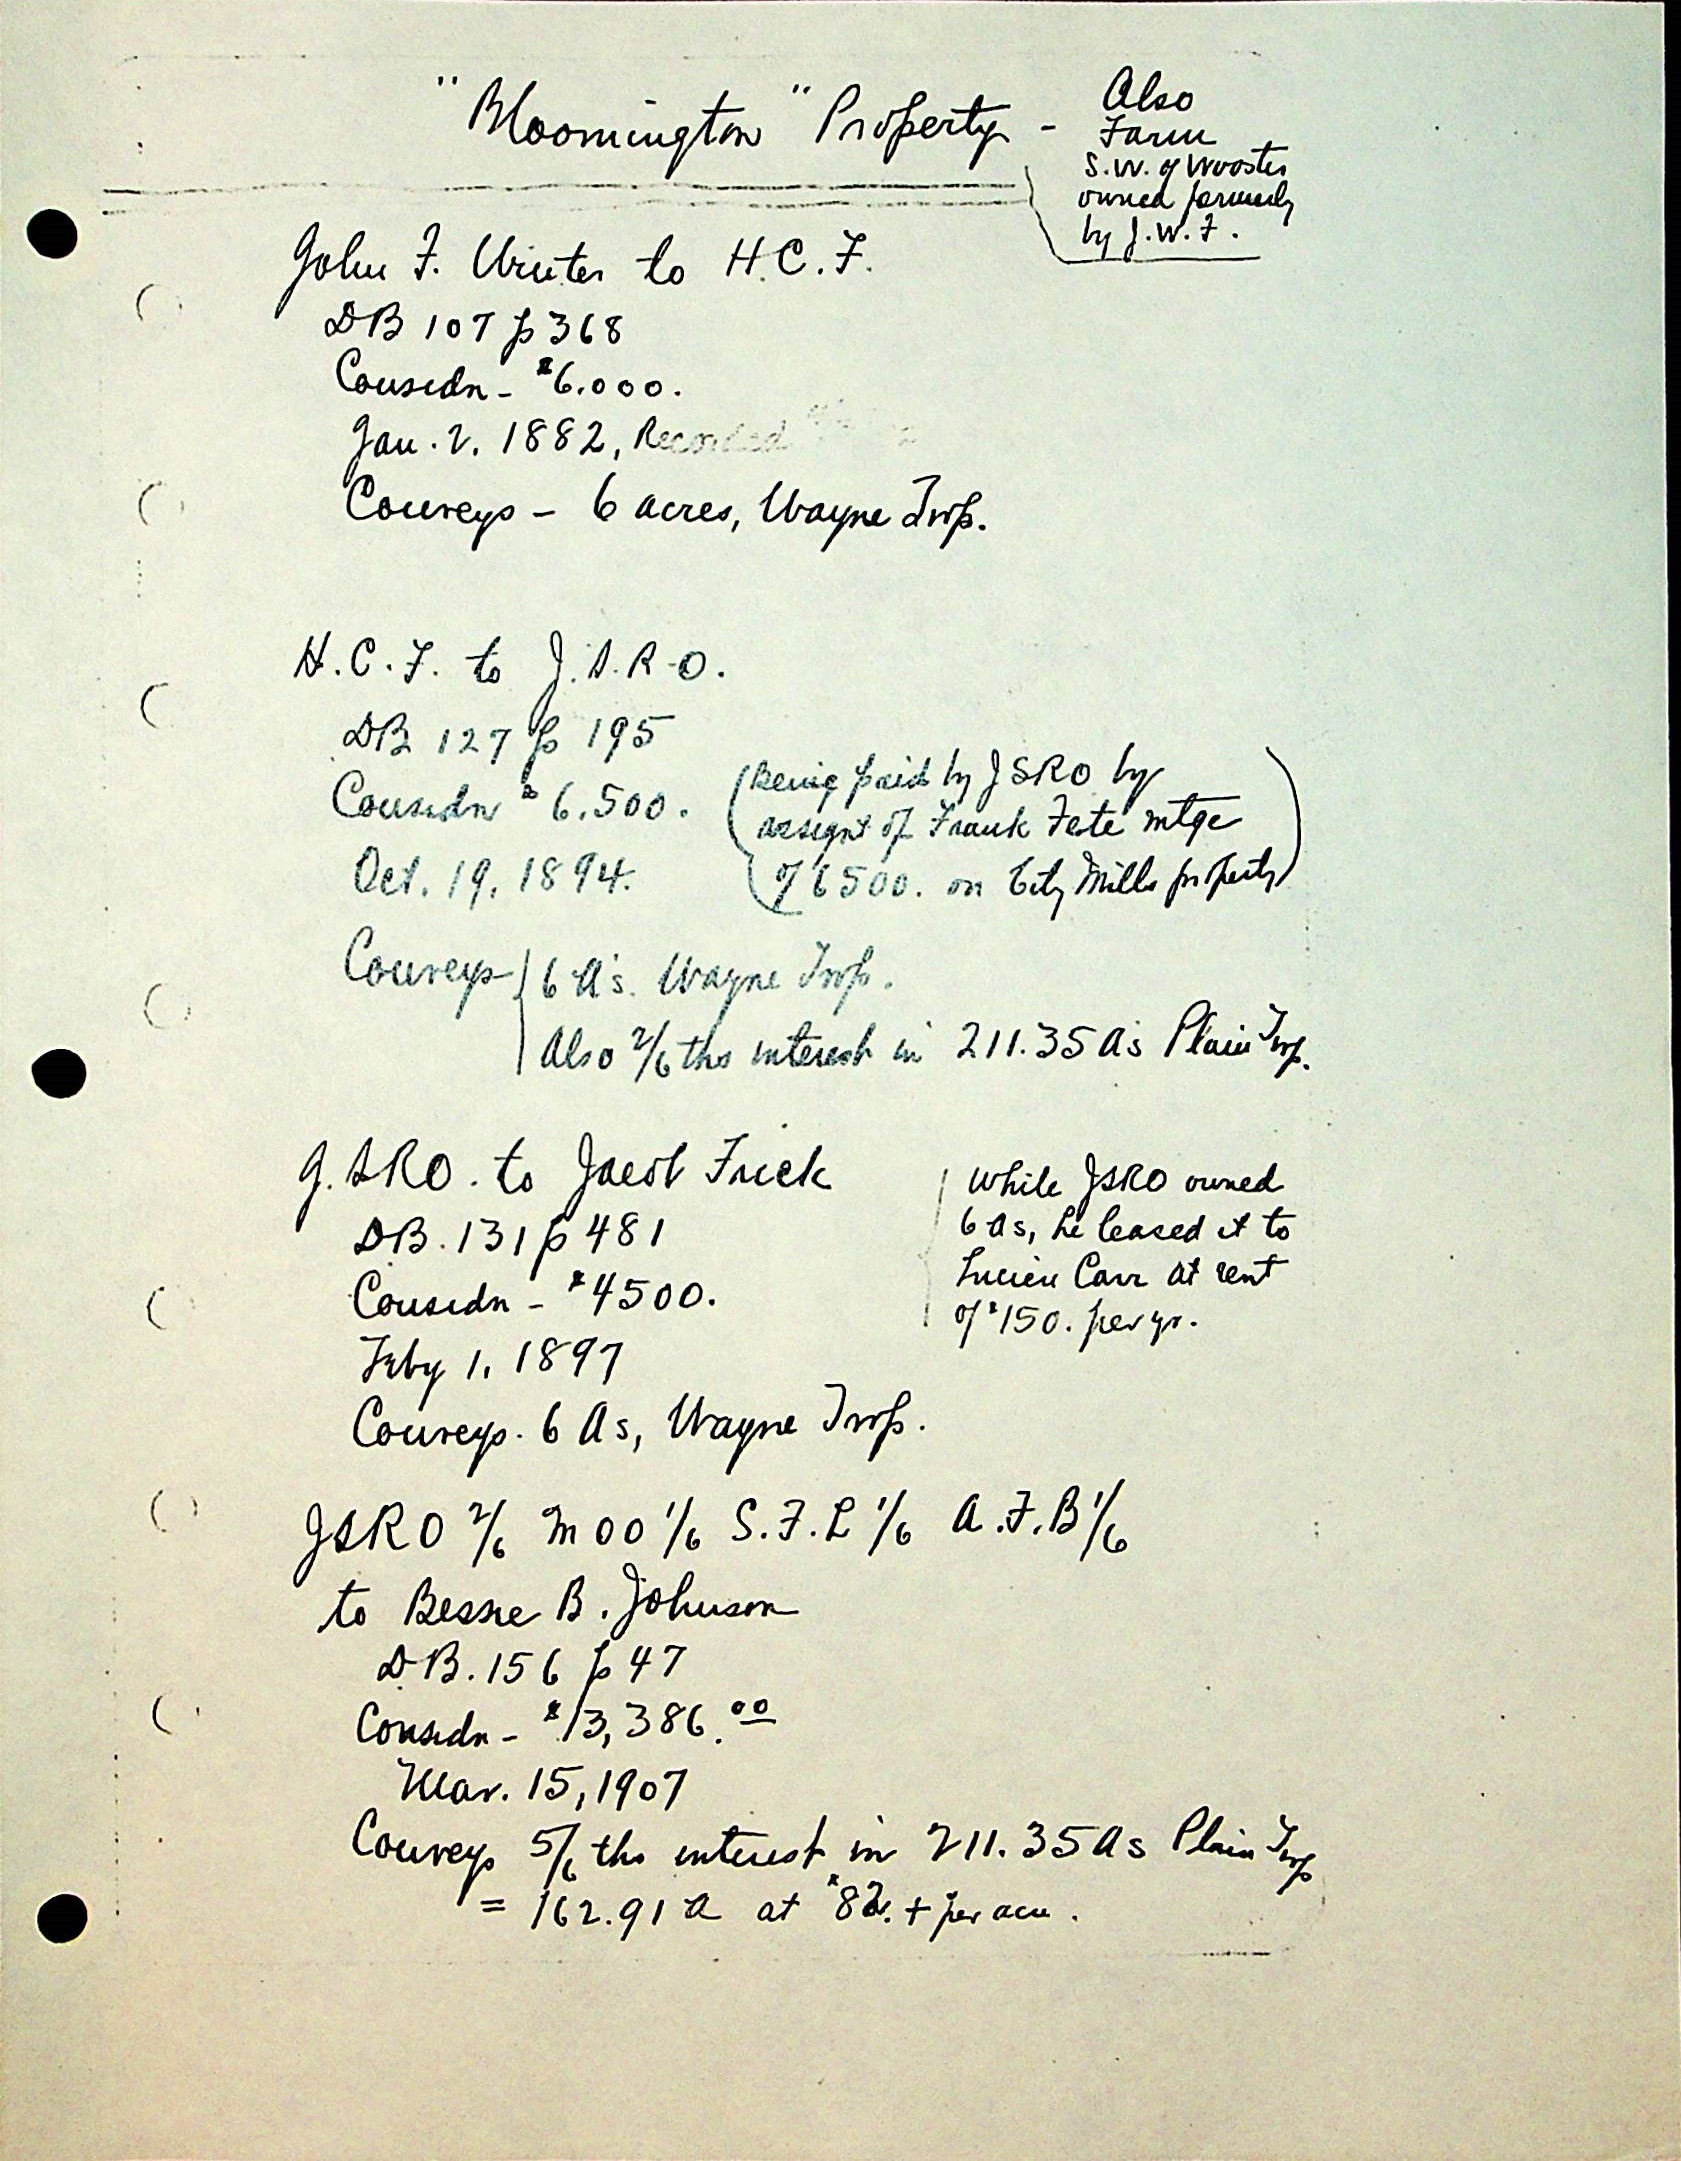 "Bloomington" Property -
Also
Farm
S.W. of Wooster
owned formerly
by J.W.F.
John F. Winter to H.C.F.
DB 107 p 368
Considn - $6.000.
Jan. 2. 1882, Recorded
Conveys - 6 acres, Wayne Twp.
H.C.F. to J.S.R.O.
DB 127 p 195
Considn $6.500.
Oct. 19, 1894.
(Being paid by JSRO by
assignt of Frank Fete mtge
of 6500. on City Mills property)
Conveys 6 A's. Wayne Twp.
Also 2/6 ths interest in 211.35 A's Plain Twp.
J.SRO. to Jacob Frick
DB. 131 p 481
Considn - $4500.
Feby 1, 1897
Conveys. 6 As, Wayne Twp.
While JSRO owned
6 As, he leased it to
Lucien Carr at rent
of $150. per yr.
JSRO 2/6 MOO 1/6 S.F.L 1/6 A.F.B 1/6
to Bessie B. Johnson
DB. 156 p 47
Considn - $13,386.00
Mar. 15, 1907
Conveys 5/6 ths interest in 211.35 As Plain Twp
= 162.91 A at $82. + per acre.